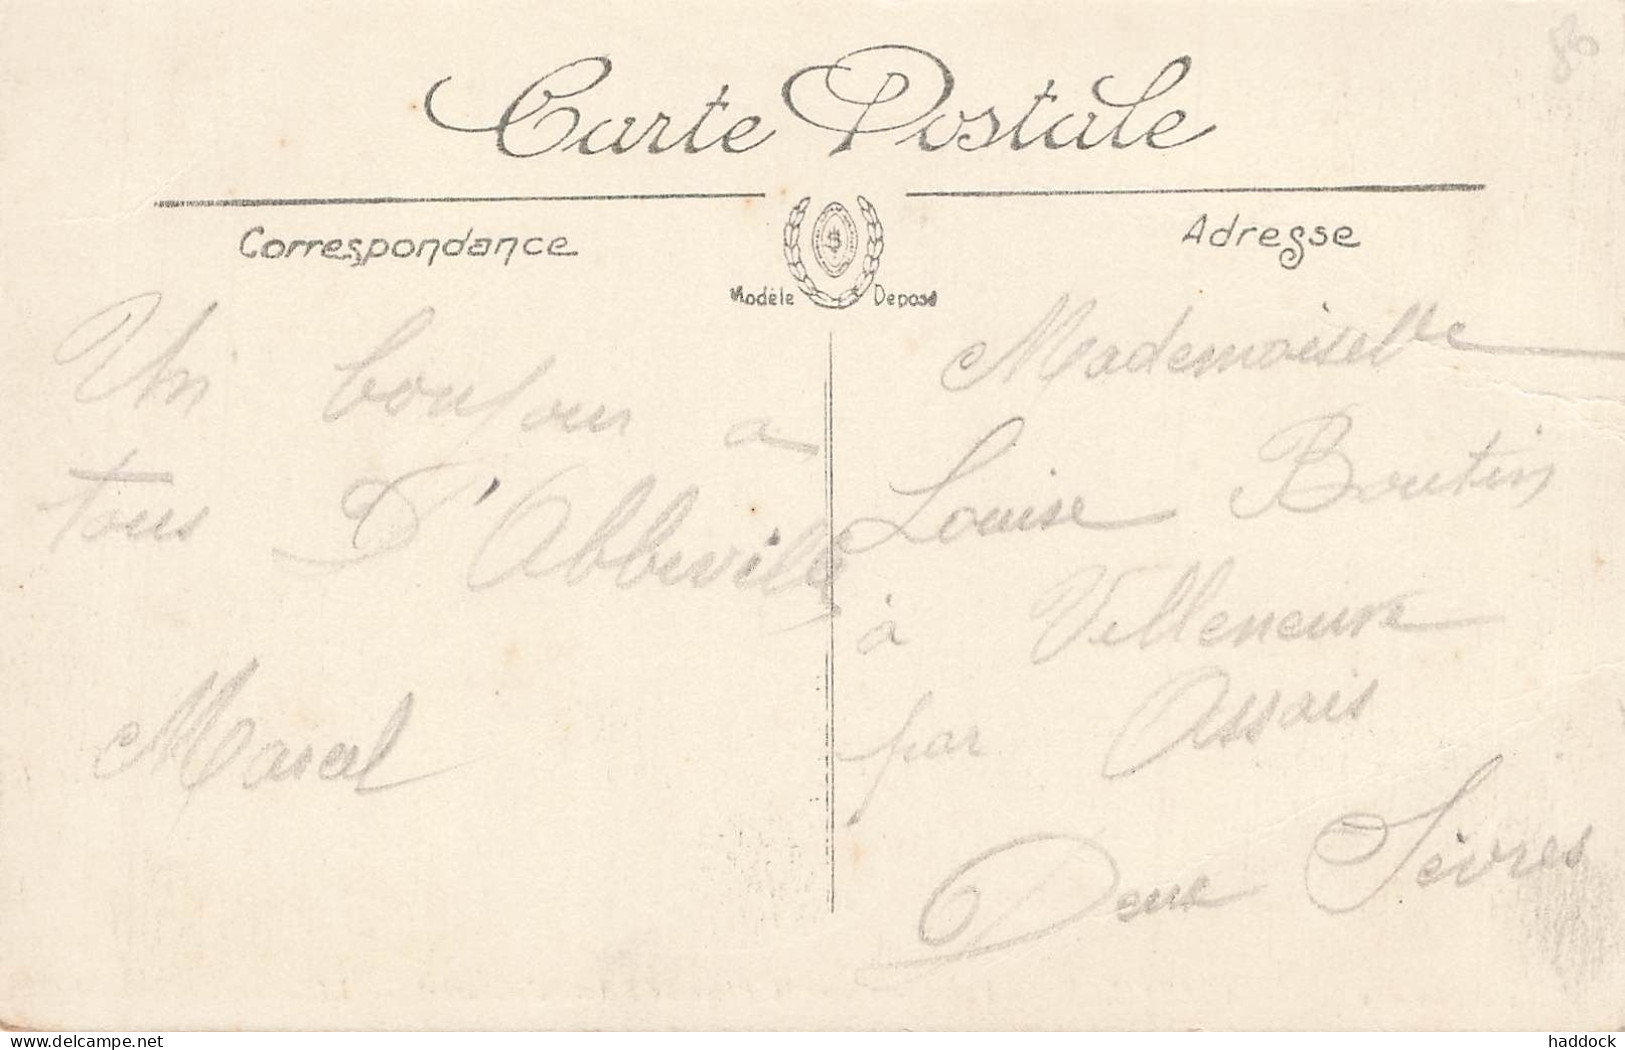 80
Carte Postale
Correspondance
Adresse
Modèle Deposé
Un bonjour a
tous D'Abbeville
Marcel
Mademoiselle
Louise Boutin
à Villeneuve
par Assais
Deux Sèvres
www.delcampe.net
haddock